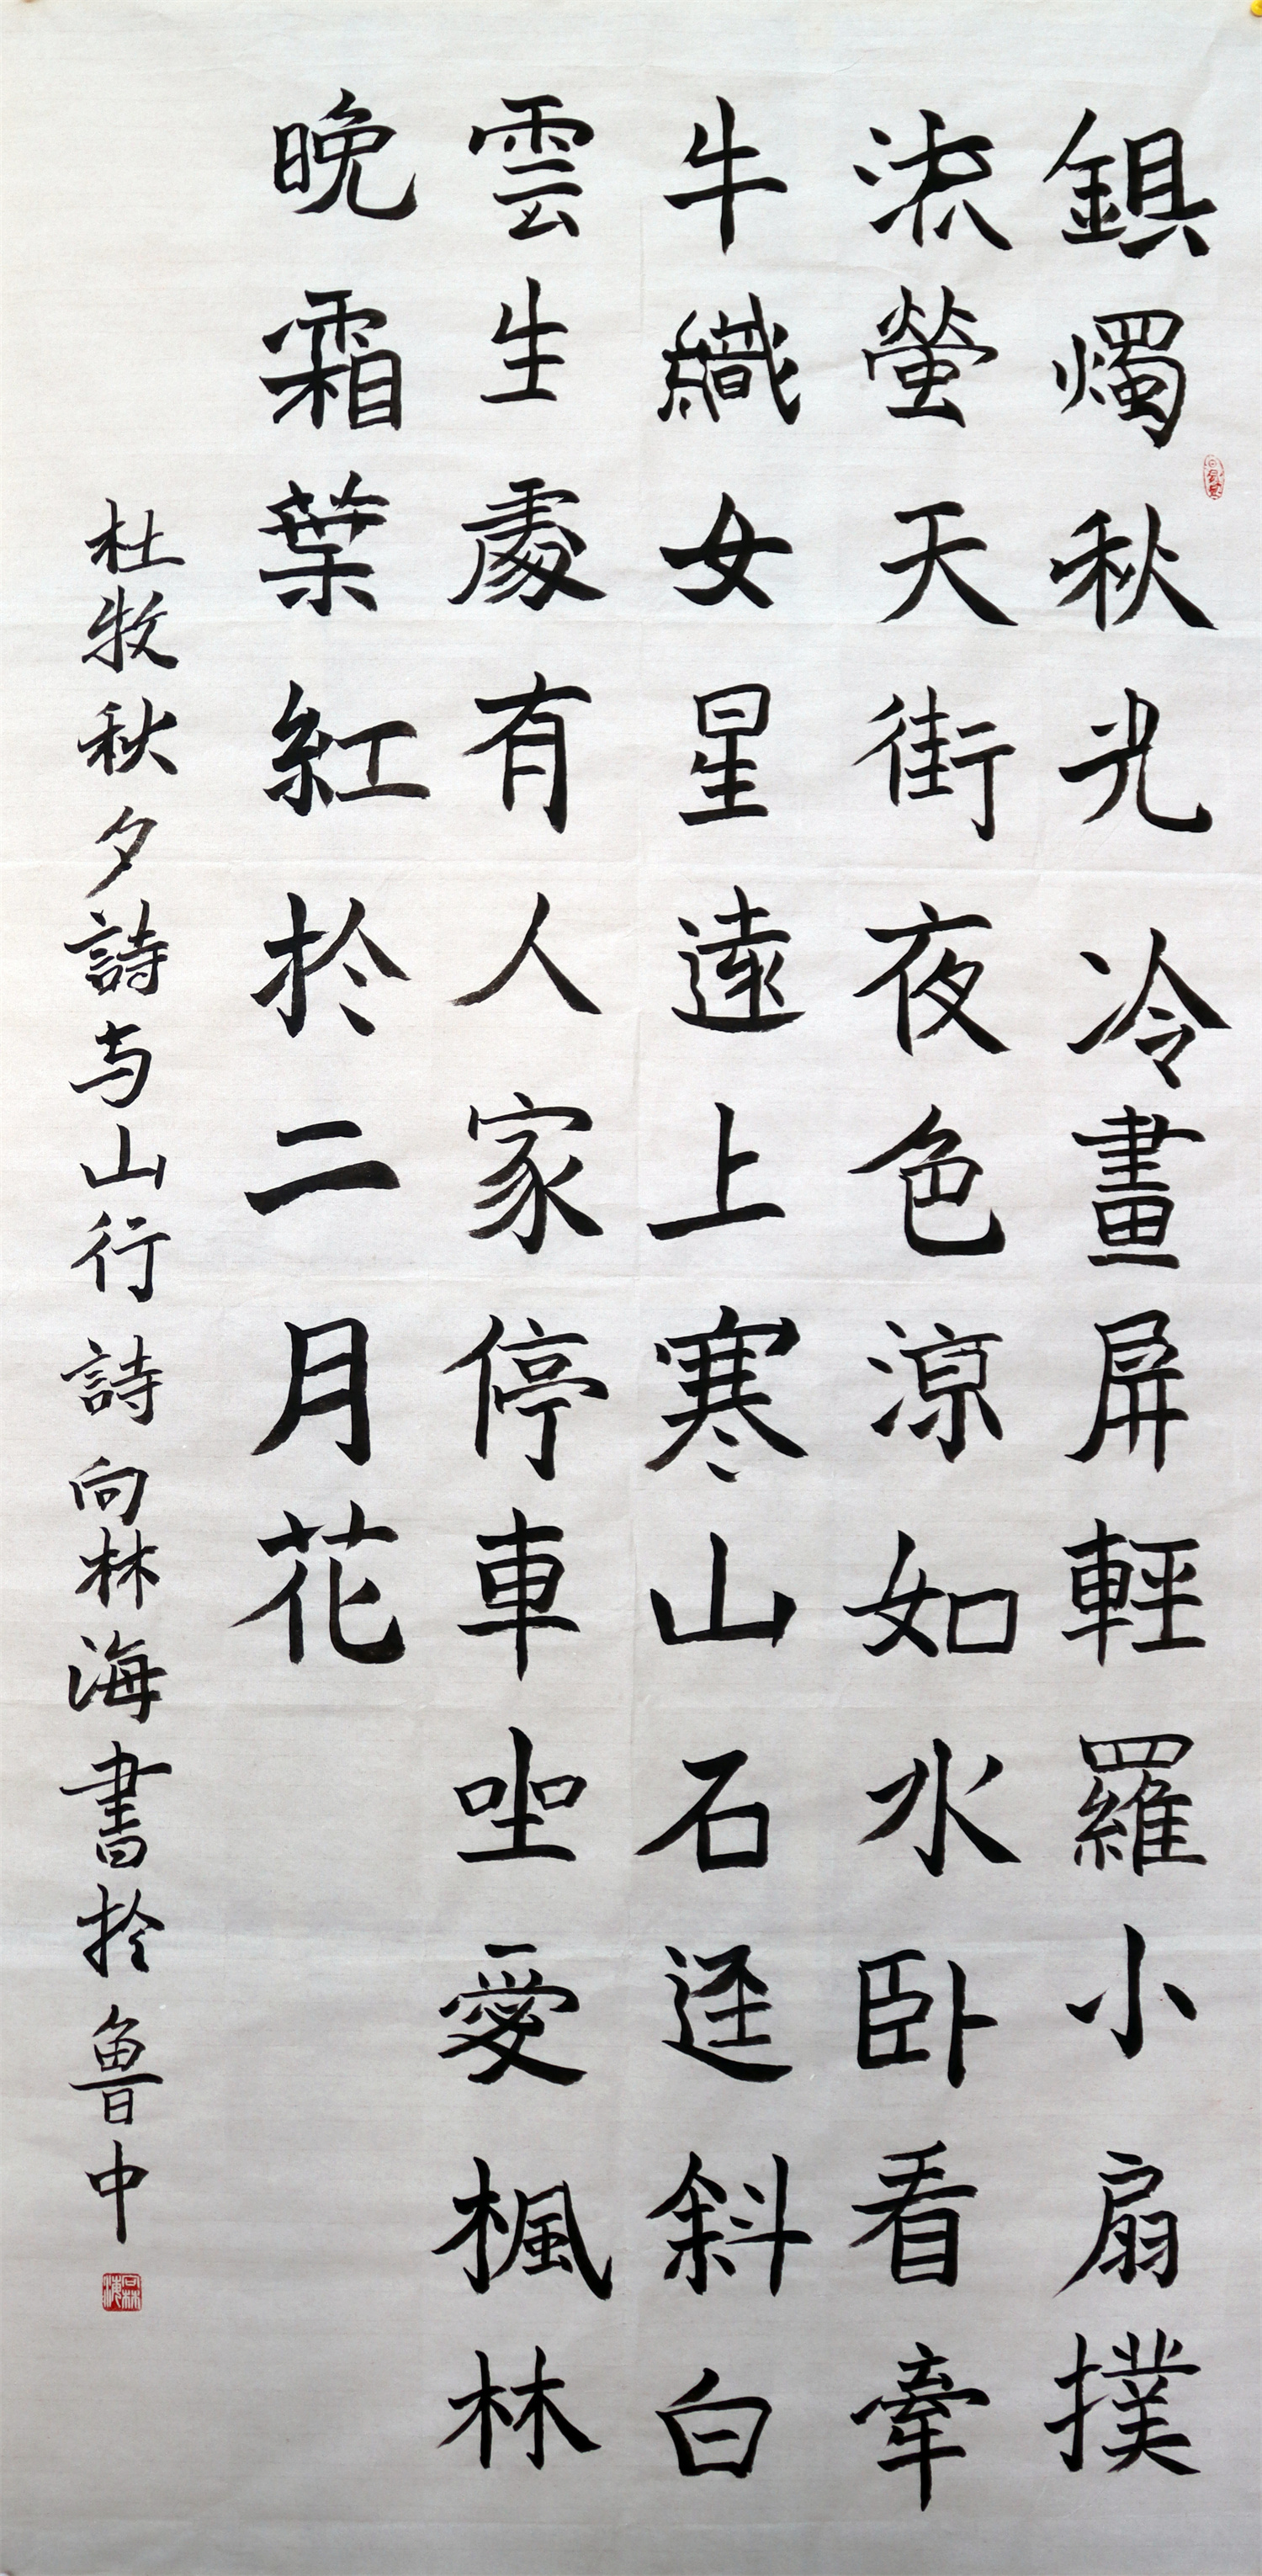 銀燭秋光冷畫屏輕羅小扇撲
流螢天街夜色涼如水卧看牽
牛織女星遠上寒山石逕斜白
雲生處有人家停車坐愛楓林
晚霜葉紅於二月花
杜牧秋夕詩与山行詩向林海書於魯中
向林海